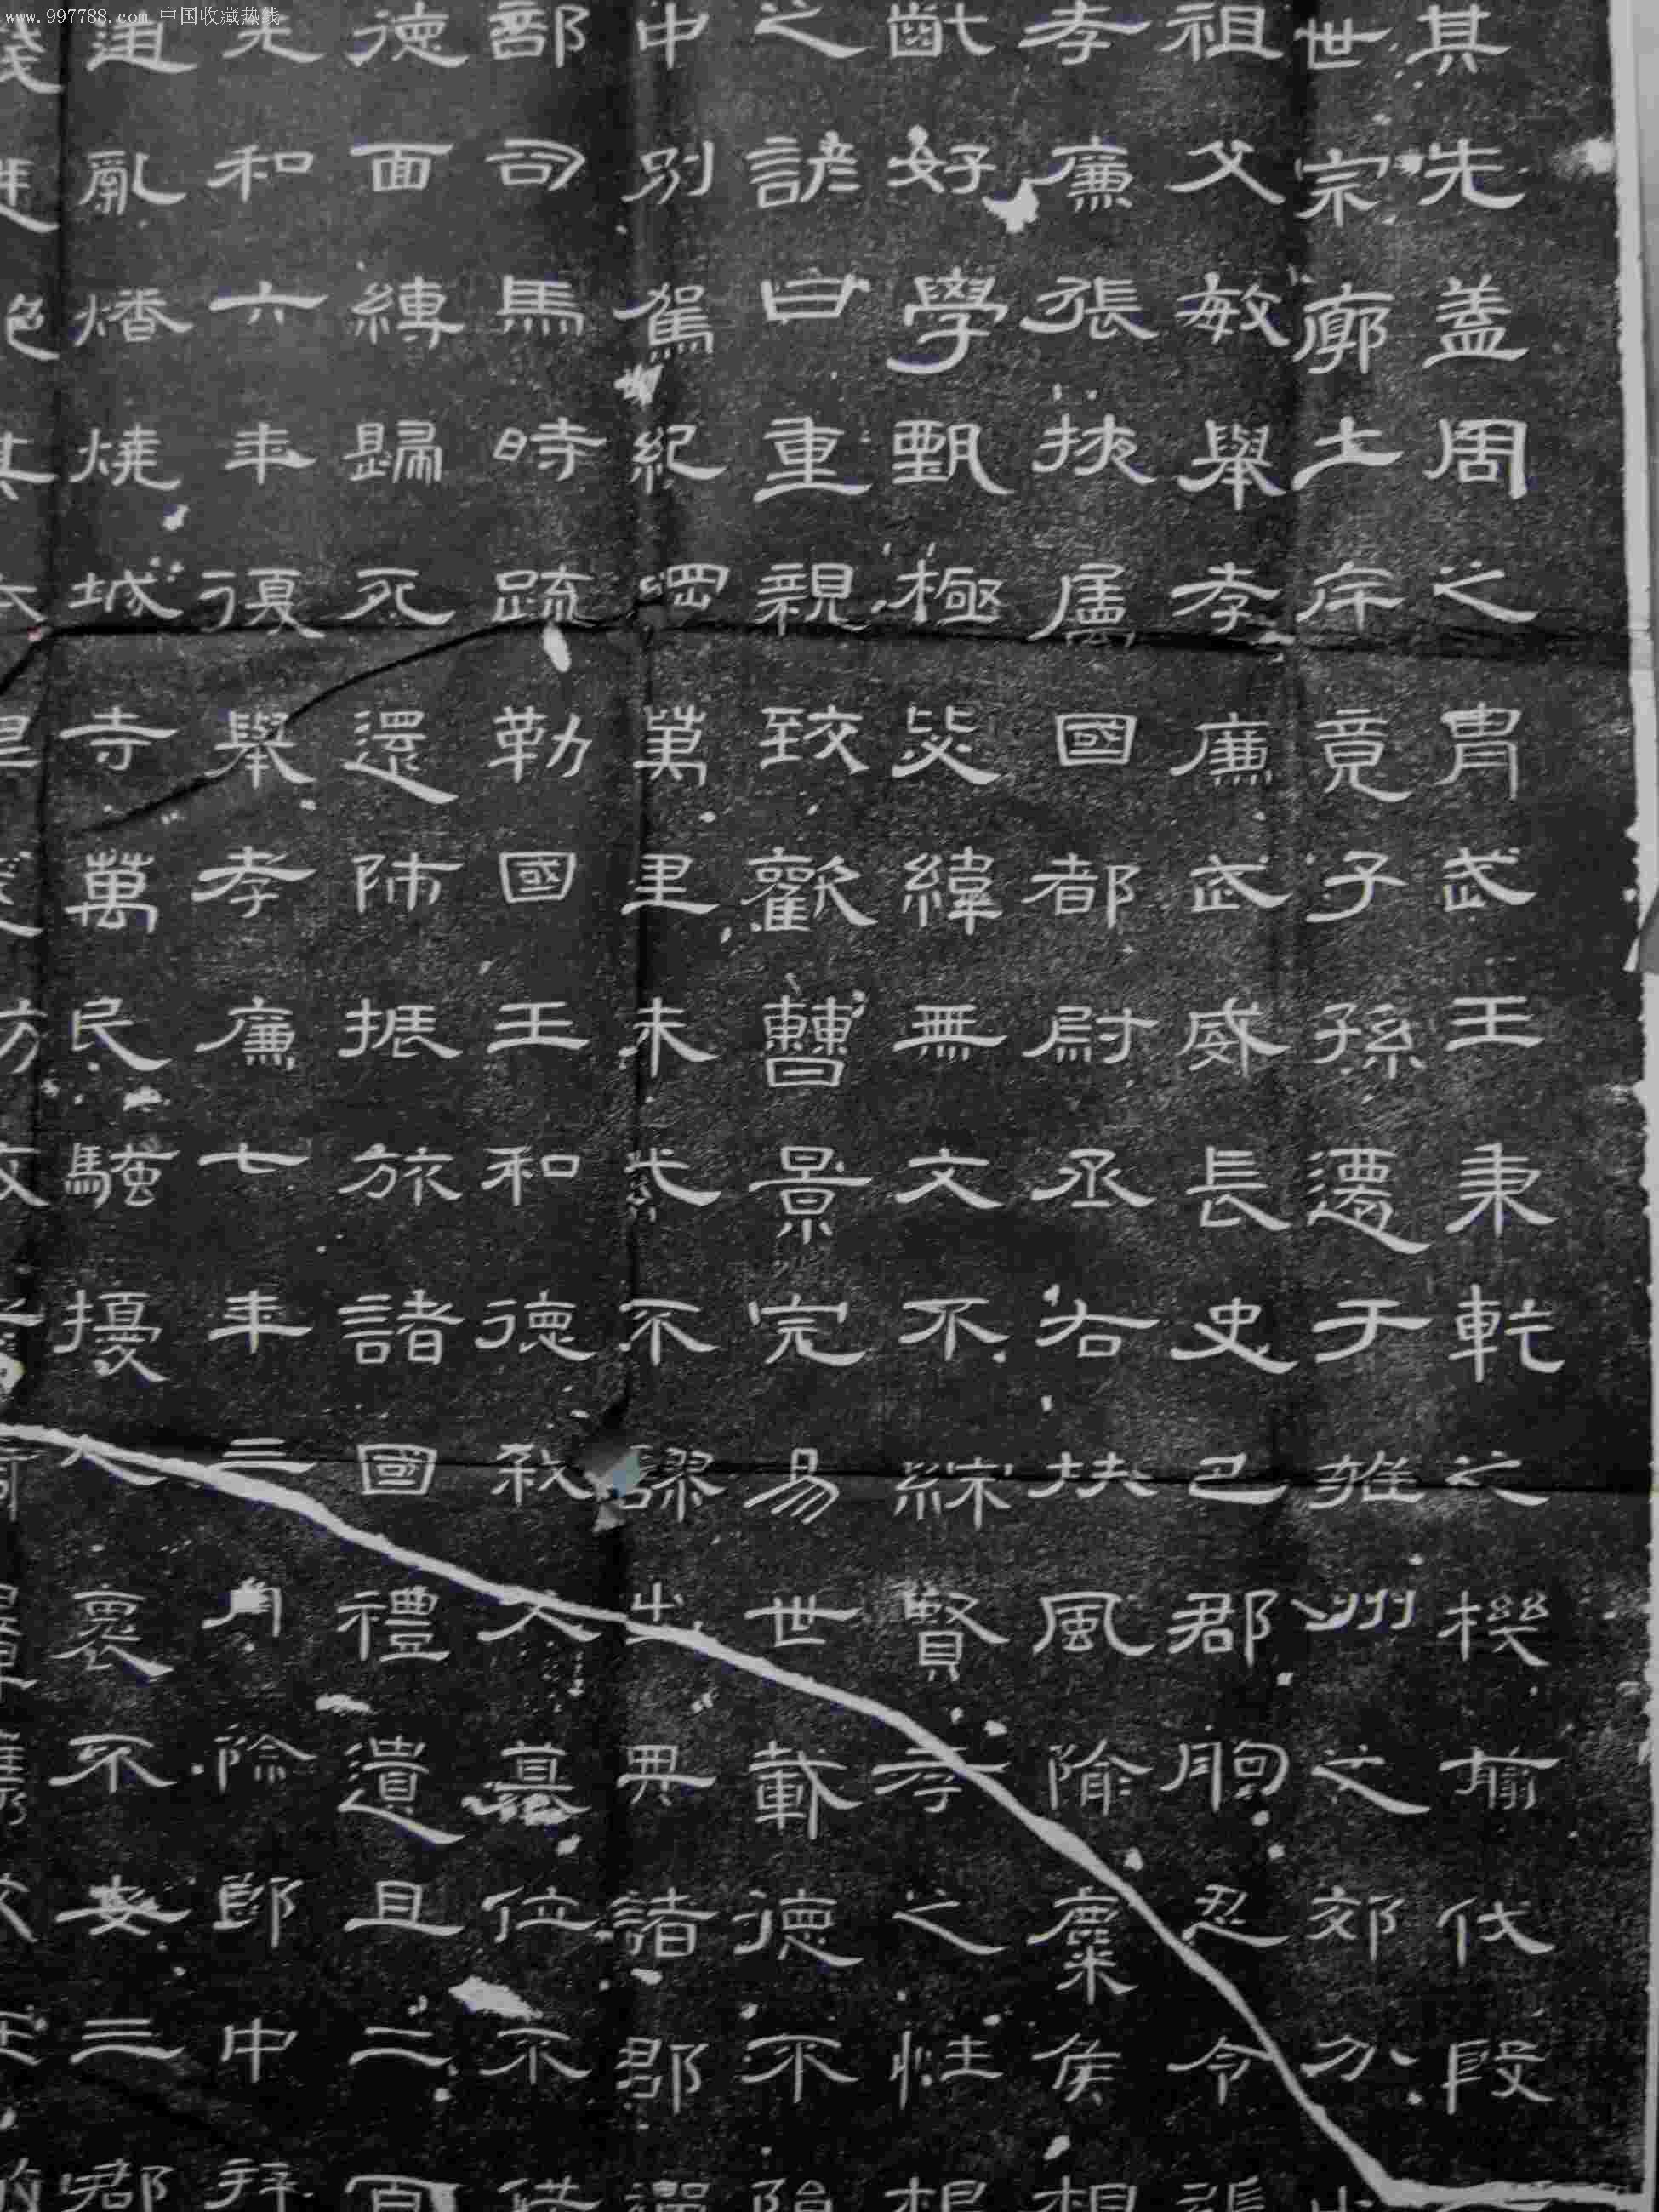 www.997788.com 中国收藏热线
其先蓋周之胄武王秉乾之機翦伐殷
世宗廓土斥竟子孫遷于雍州之郊分
祖父敏舉孝廉武威長史巴郡朐忍令張
孝廉張掖屬國都尉丞右扶風隃麋侯相
齔好學甄極毖緯無文不綜賢孝之性根
之諺曰重親致歡曹景完易世載德不隕
中別駕紀綱萬里朱紫不謬出典諸郡彈
部司馬時疏勒國王和德弒父篡位不供
德面縛歸死還師振旅諸國禮遺且二百
光和六年復舉孝廉七年三月除郎中拜
逆亂燔燒城寺萬民騷擾人裹不安三郡